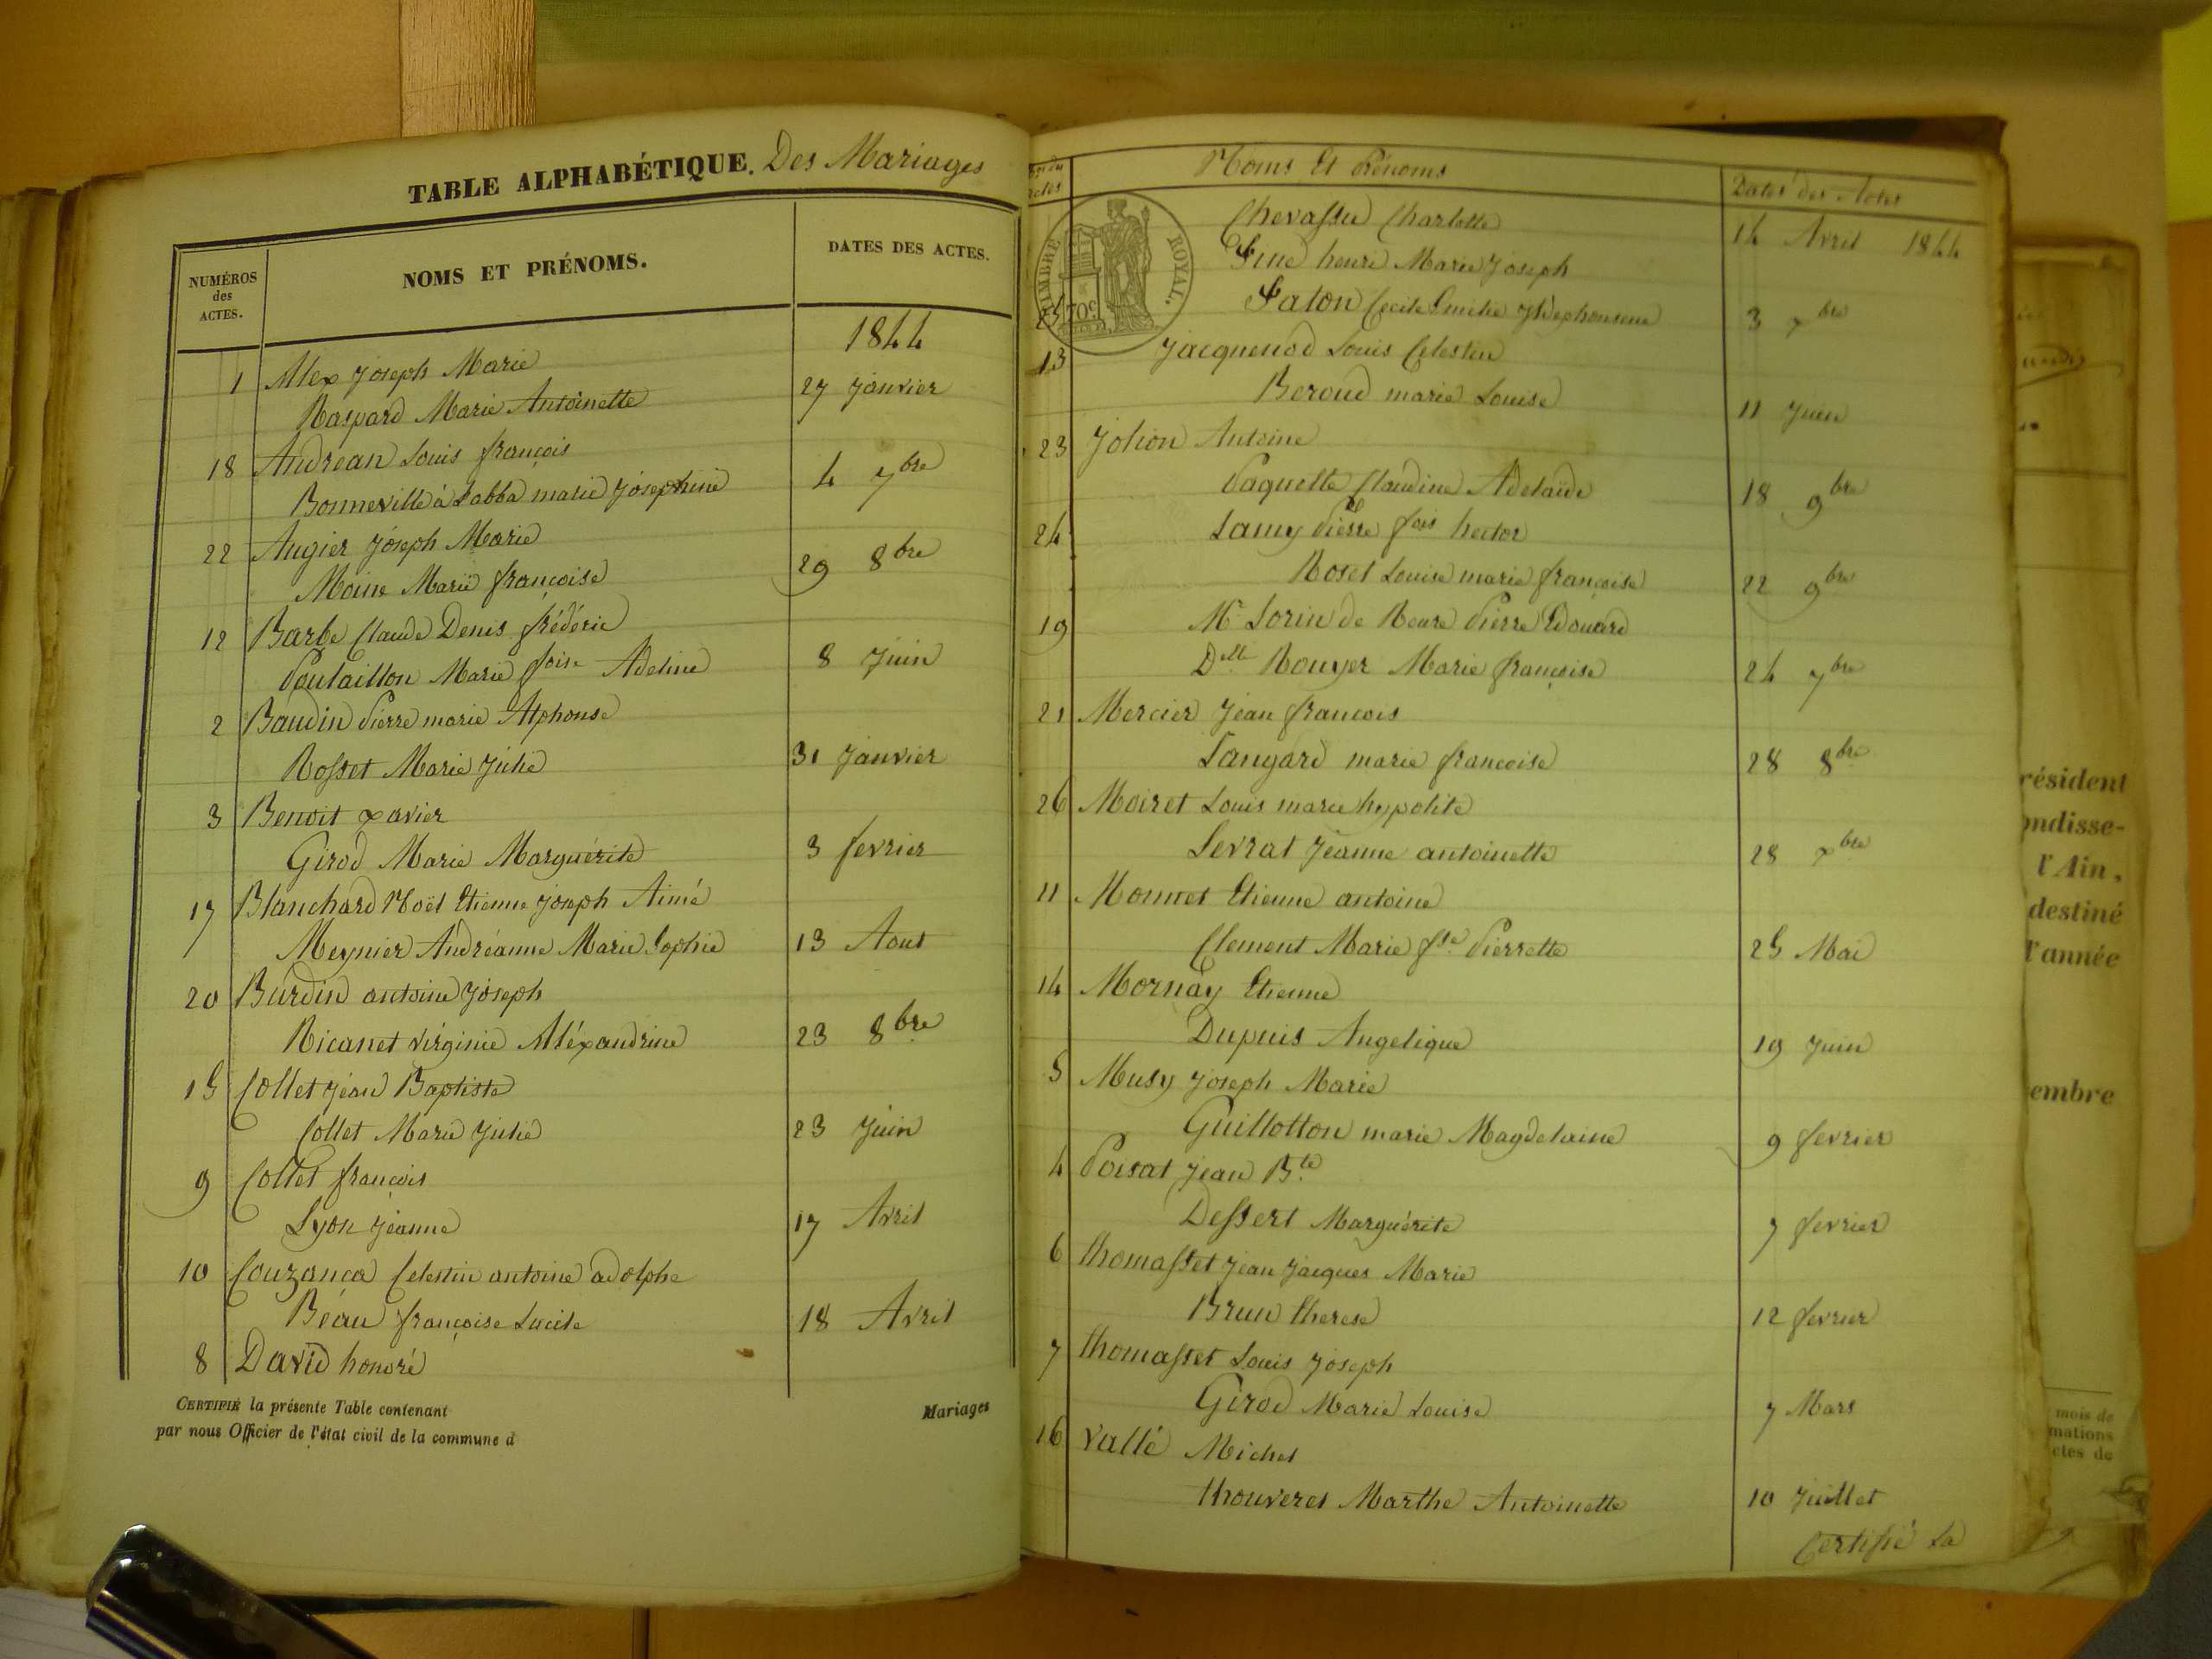 TABLE ALPHABÉTIQUE. Des Mariages
NUMÉROS des ACTES.
NOMS ET PRÉNOMS.
DATES DES ACTES.
1844
1 Allex Joseph Marie
Raspard Marie Antoinette 27 janvier
18 Andréan Louis françois
Bonneville à Labba marie Joséphine 4 7bre
22 Augier Joseph Marie
Moine Marie françoise 29 8bre
12 Barbe Claude Denis frédéric
Poulaillon Marie foise Adeline 8 Juin
2 Baudin Pierre marie Alphonse
Rosset Marie Julie 31 Janvier
3 Benoit xavier
Girod Marie Marguérite 3 fevrier
17 Blanchard Noël Etienne Joseph Aimé
Meynier Andréanne Marie Sophie 13 Aout
20 Burdin antoine Joseph
Ricanet virginie Alléxandrine 23 8bre
15 Collet Jean Baptiste
Collet Marie Julie 23 Juin
9 Collet françois
Lyon Jeanne 17 Avril
10 Couzança Celestin antoine adolphe
Béau françoise Lucile 18 Avril
8 David honoré
CERTIFIÉ la présente Table contenant Mariages
par nous Officier de l'état civil de la commune d
Noms Et Prénoms
Dates des Actes
TIMBRE ROYAL.
70c
Chevassu Charlotte 14 Avril 1844
Fine henri Marie Joseph
Faton Cecile Emilie 3 xbre
13 Jacquenod Louis Celestin
Beroud marie Louise 11 Juin
23 Jolion Antoine
Paquette Claudine Adelaïde 18 9bre
24 Lamy Pierre fois hector
Roset Louise marie françoise 22 9bre
19 Mr Lorin de Reure Pierre Edouard
Delle Rouyer Marie françoise 24 7bre
21 Mercier Jean francois
Tangard marie francoise 28 8bre
26 Moiret Louis marie hypolite
Levrat Jeanne antoinette 28 xbre
11 Monnet Etienne antoine
Clement Marie fse Pierrette 25 Mai
14 Mornay Etienne
Dupuis Angelique 19 Juin
5 Musy Joseph Marie
Guillotton marie Magdelaine 9 fevrier
4 Poisat Jean Bte
Dessert Marguérite 7 fevrier
6 thomasset Jean Jacques Marie
Brun therese 12 fevrier
7 thomasset Louis Joseph
Girod Marie Louise 7 Mars
16 Vallé Michel
thouverel Marthe Antoinette 10 Juillet
Certifié La
résident
ondisse-
l'Ain,
destiné
l'année
embre
mois de
mations
ctes de